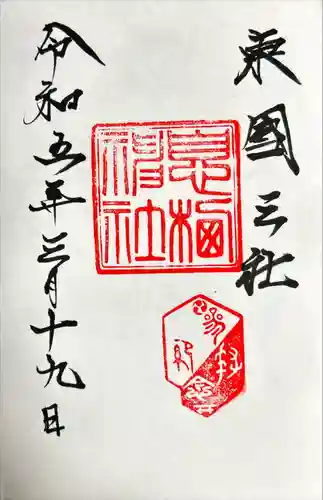 東國三社
息栖神社
令和五年三月十九日